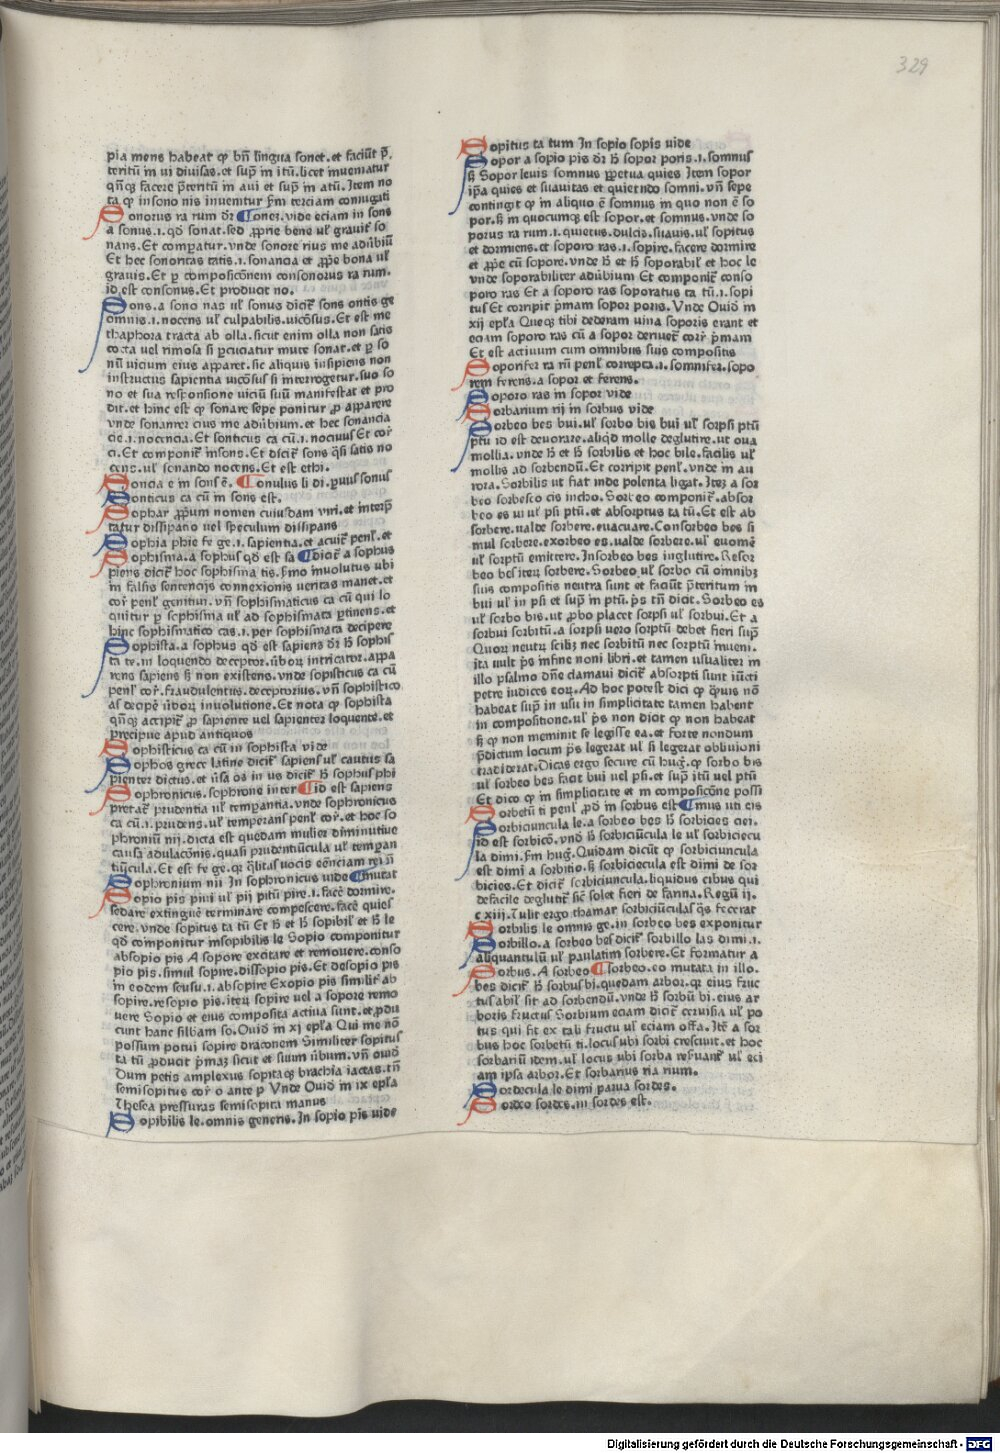 329
pia mens habeat qꝫ bñ lingua sonet.et faciũt p̃,
teritũ in ui diuisas.et sup̃ in itũ.licet inueniatur
qñqꝫ facere p̃teritũ in aui et sup̃ in atũ.Item no
ta qꝫ insono nis inuenitur ẜm terciam coniugati
Sonorus ra rum dr̃ ¶oner.vide eciam in sons
a sonus.i.qđ sonat.sed ꝓprie bene uł grauit̃ so
nans.Et compatur.vnde sonore rius me adũbiũ
Et hec sonoritas tatis.i.sonancia et ꝓpe bona uł
grauis.Et ꝑ composicõnem consonorus ra rum.
id est consonus.Et producit no.
Sons.a sono nas uł sonus dicit̃ sons ontis ge
omnis.i.nocens uł culpabilis.uicõsus.Et est me
thaphora tracta ab olla.sicut enim olla non satis
cocta uel rimosa si ꝑcuciatur mute sonat.et ꝑ so
nũ uicium eius apparet.sic aliquis insipiens non
instructus sapientia uicõsus si interrogetur.suo so
no et sua responsione uiciũ suũ manifestat et pro
dit.et hinc est qꝫ sonare sepe ponitur ꝓ apparere
vnde sonanter cius me adũbium.et hec sonancia
cie.i.nocencia.Et sonticus ca cũ.i.nociuus Et cor̃
ci.Et componit̃ insons.Et dicit̃ sons q̃si satis no
cens.uł sonando nocens.Et est ethi.
Soncia e in sons ẽ. ¶onulus li di.ꝑuus sonus
Sonticus ca cũ in sons est.
Sophar ꝓpum nomen cuiusdam viri.et interp̃
tatur dissipãno uel speculum dissipans
Sophia phie fe ge.i.sapientia.et acuit̃ penł.et
Sophisma.a sophus qđ est sa ¶dicit̃ a sophus
piens dicit̃ hoc sophisma tis.ẜmo inuolutus ubi
in falsis sentencijs connexionis ueritas manet.et
cor̃ penł genitiui.vñ sophismaticus ca cũ qui lo
quitur ꝑ sophisma uł ad sophismata ꝑtinens.et
hinc sophismatico cas.i.per sophismata decipere
Sophista.a sophus qđ est sapiens dr̃ ħ sophis
ta te.in loquendo deceptor.ũboꝝ intricator.appa
rens sapiens ẜ non existens.vnde sopisticus ca cũ
penł cor̃.fraudulentus.deceptorius.vñ sophistico
as decipe ũboꝝ inuolutione.Et nota qꝫ sophista
qñqꝫ accipit̃ ꝓ sapiente uel sapienter loquente.et
precipue apud antiquos
Sophisticus ca cũ in sophista vide
Sophos grece latine dicit̃ sapiens uł cautus sa
pienter dictus.et ũsa os in us dicit̃ ħ sophus phi
Sophronicus.sophrone inter ¶id est sapiens
pretat̃ prudentia uł temꝑantia.vnde sophronicus
ca cũ.i.prudens.uł temperans penł cor̃.et hoc so
phroniũ nij.dicta est quedam mulier diminutiue
causa adulacõnis.quasi prudentiũcula uł temꝑan
tiũcula.Et est fe ge.qꝛ q̃litas uocis eẽnciam rei ñ
Sophronium nii In sophronicus vide ¶mutat
Sopio pis piui uł pij pitũ pire.i.facẽ dormire.
sedare extinguẽ terminare compescere.facẽ quies
cere.vnde sopitus ta tũ Et ħ et ħ sopibił et ħ le
qđ componitur insopibilis le Sopio componitur
absopio pis A sopore excitare et remouere.conso
pio pis.simul sopire.dissopio pis.Et desopio pis
in eodem sẽusu.i.absopire Exopio pis similit̃ ab
sopire.resopio pis.iteꝝ sopire uel a sopore remo
uere Sopio et eius composita actiua sunt.et ꝓdu
cunt hanc silbam so.Ouid̃ in xj epła Qui me nõ
possum potui sopire draconem Similiter sopitus
ta tũ ꝓducit p̃maꝫ sicut et suum ũbum.vñ ouid̃
Dum petis amplexus sopitaqꝫ brachia iactas.tñ
semisopitus cor̃ o ante p Vnde Ouid̃ in ix epła
Thesea pressuras semisopita manus
Sopibilis le.omnis generis.In sopio pis vide
Sopitus ta tum In sopio sopis vide
Sopor a sopio pis dr̃ ħ sopor poris.i.somnus
ẜ Sopor leuis somnus ꝑpetua quies Item sopor
ip̃a quies et suauitas et quietudo somni.vñ sepe
contingit qꝫ in aliquo ẽ somnus in quo non ẽ so
por.ẜ in quocumqꝫ est sopor.et somnus.vnde so
porus ra rum.i.quietus.dulcis.suauis.uł sopitus
et dormiens.et soporo ras.i.sopire.facere dormire
et ꝓpe cũ sopore.vnde ħ et ħ soporabił et hoc le
vnde soporabiliter adũbium Et componit̃ conso
poro ras Et a soporo ras soporatus ta tũ.i.sopi
tus Et corripit p̃mam sopor poris.Vnde Ouid̃ in
xij epła Queqꝫ tibi dederam uina soporis erant et
eciam soporo ras cũ a sopor deriuet̃ corr̃ p̃mam
Et est actiuum cum omnibus suis compositis
Soporifer ra rũ penł correpta.i.somnifer.sopo
rem ferens.a sopor et ferens.
Soporo ras in sopor vide
Sorbarium rij in sorbus vide
Sorbeo bes bui.uł sorbo bis bui uł sorpsi ptũ
ptu id est deuorare.aliqđ molle deglutire.ut oua
mollia.vnde ħ et ħ sorbilis et hoc bile.facilis uł
mollis ad sorbendũ.Et corripit penł.vnde in au
rora.Sorbilis ut fiat inde polenta ligat.Iteꝫ a sor
beo sorbesco cis incho.Sorbeo componit̃.absor
beo es ui uł psi ptũ.et absorptus ta tũ.Et est ab
sorbere.ualde sorbere.euacuare.Consorbeo bes si
mul sorbere.exorbeo es.ualde sorbere.uł euomẽ
uł sorptũ emittere.Insorbeo bes inglutire.Resor
beo bes iteꝝ sorbere.Sorbeo uł sorbo cũ omnibꝫ
suis compositis neutra sunt et faciũt p̃teritum in
bui uł in psi et sup̃ in ptũ.p̃s tñ dicit.Sorbeo es
uł sorbo bis.ut ꝓbo placet sorpsi uł sorbui.Et a
sorbui sorbitũ.a sorpsi uero sorptũ debet fieri sup̃
Quoꝝ neutꝝ sciliꝫ nec sorbitũ nec sorptũ inueni.
ita uult p̃s infine noni libri.et tamen usualiter in
illo psalmo dñe clamaui dicit̃ absorpti sunt iũcti
petre iudices eoꝝ.Ad hoc potest dici qꝫ q̃uis nõ
habeat sup̃ in usu in simplicitate tamen habent
in compositione.uł p̃s non dicit qꝫ non habeat
ẜ qꝫ non meminit se legisse ea.et forte nondum
p̃dictum locum p̃s legerat uł si legerat obliuioni
tradiderat.Dicas ergo secure cũ hug̃.qꝫ sorbo bis
uł sorbeo bes facit bui uel psi.et sup̃ itũ uel ptũ
Et dico qꝫ in simplicitate et in composicõne possi
Sorbetũ ti penł ꝓđ in sorbus est ¶mus uti eis
Sorbiciuncula le.a sorbeo bes ħ sorbicies ciei.
id est sorbicõ.vnđ ħ sorbiciũcula le uł sorbiciecu
la dimi.ẜm hug̃.Quidam dicũt qꝫ sorbiciuncula
est dimi a sorbitio.ẜ sorbiciecula est dimi de sor
bicies.Et dicit̃ sorbiciuncula.liquidus cibus qui
defacile deglutit̃ sic̃ solet fieri de farina.Regũ ij.
c xiij.Tulit ergo thamar sorbiciũculas q̃s fecerat
Sorbilis le omnis ge.in sorbeo bes exponitur
Sorbillo.a sorbeo bes dicit̃ sorbillo las dimi.i.
aliquantulũ uł paulatim sorbere.Et formatur a
Sorbus.A sorbeo ¶sorbeo.eo mutata in illo.
bes dicit̃ ħ sorbus bi.quedam arbor.qꝛ eius fruc
tus abił sit ad sorbendũ.vnde ħ sorbũ bi.eius ar
boris fructus Sorbium eciam dicit̃ ceruisia uł po
tus qui fit ex tali fructu uł eciam offa.Itẽ a sor
bus hoc sorbetũ ti.locus ubi sorbi crescunt.et hoc
sorbariũ idem.uł locus ubi sorba reẜuant̃ uł eci
am ipsa arbor.Et sorbarius ria rium.
Sordecula le dimi parua sordes.
Sordeo sordes.in sordes est.
Digitalisierung gefördert durch die Deutsche Forschungsgemeinschaft - DFG